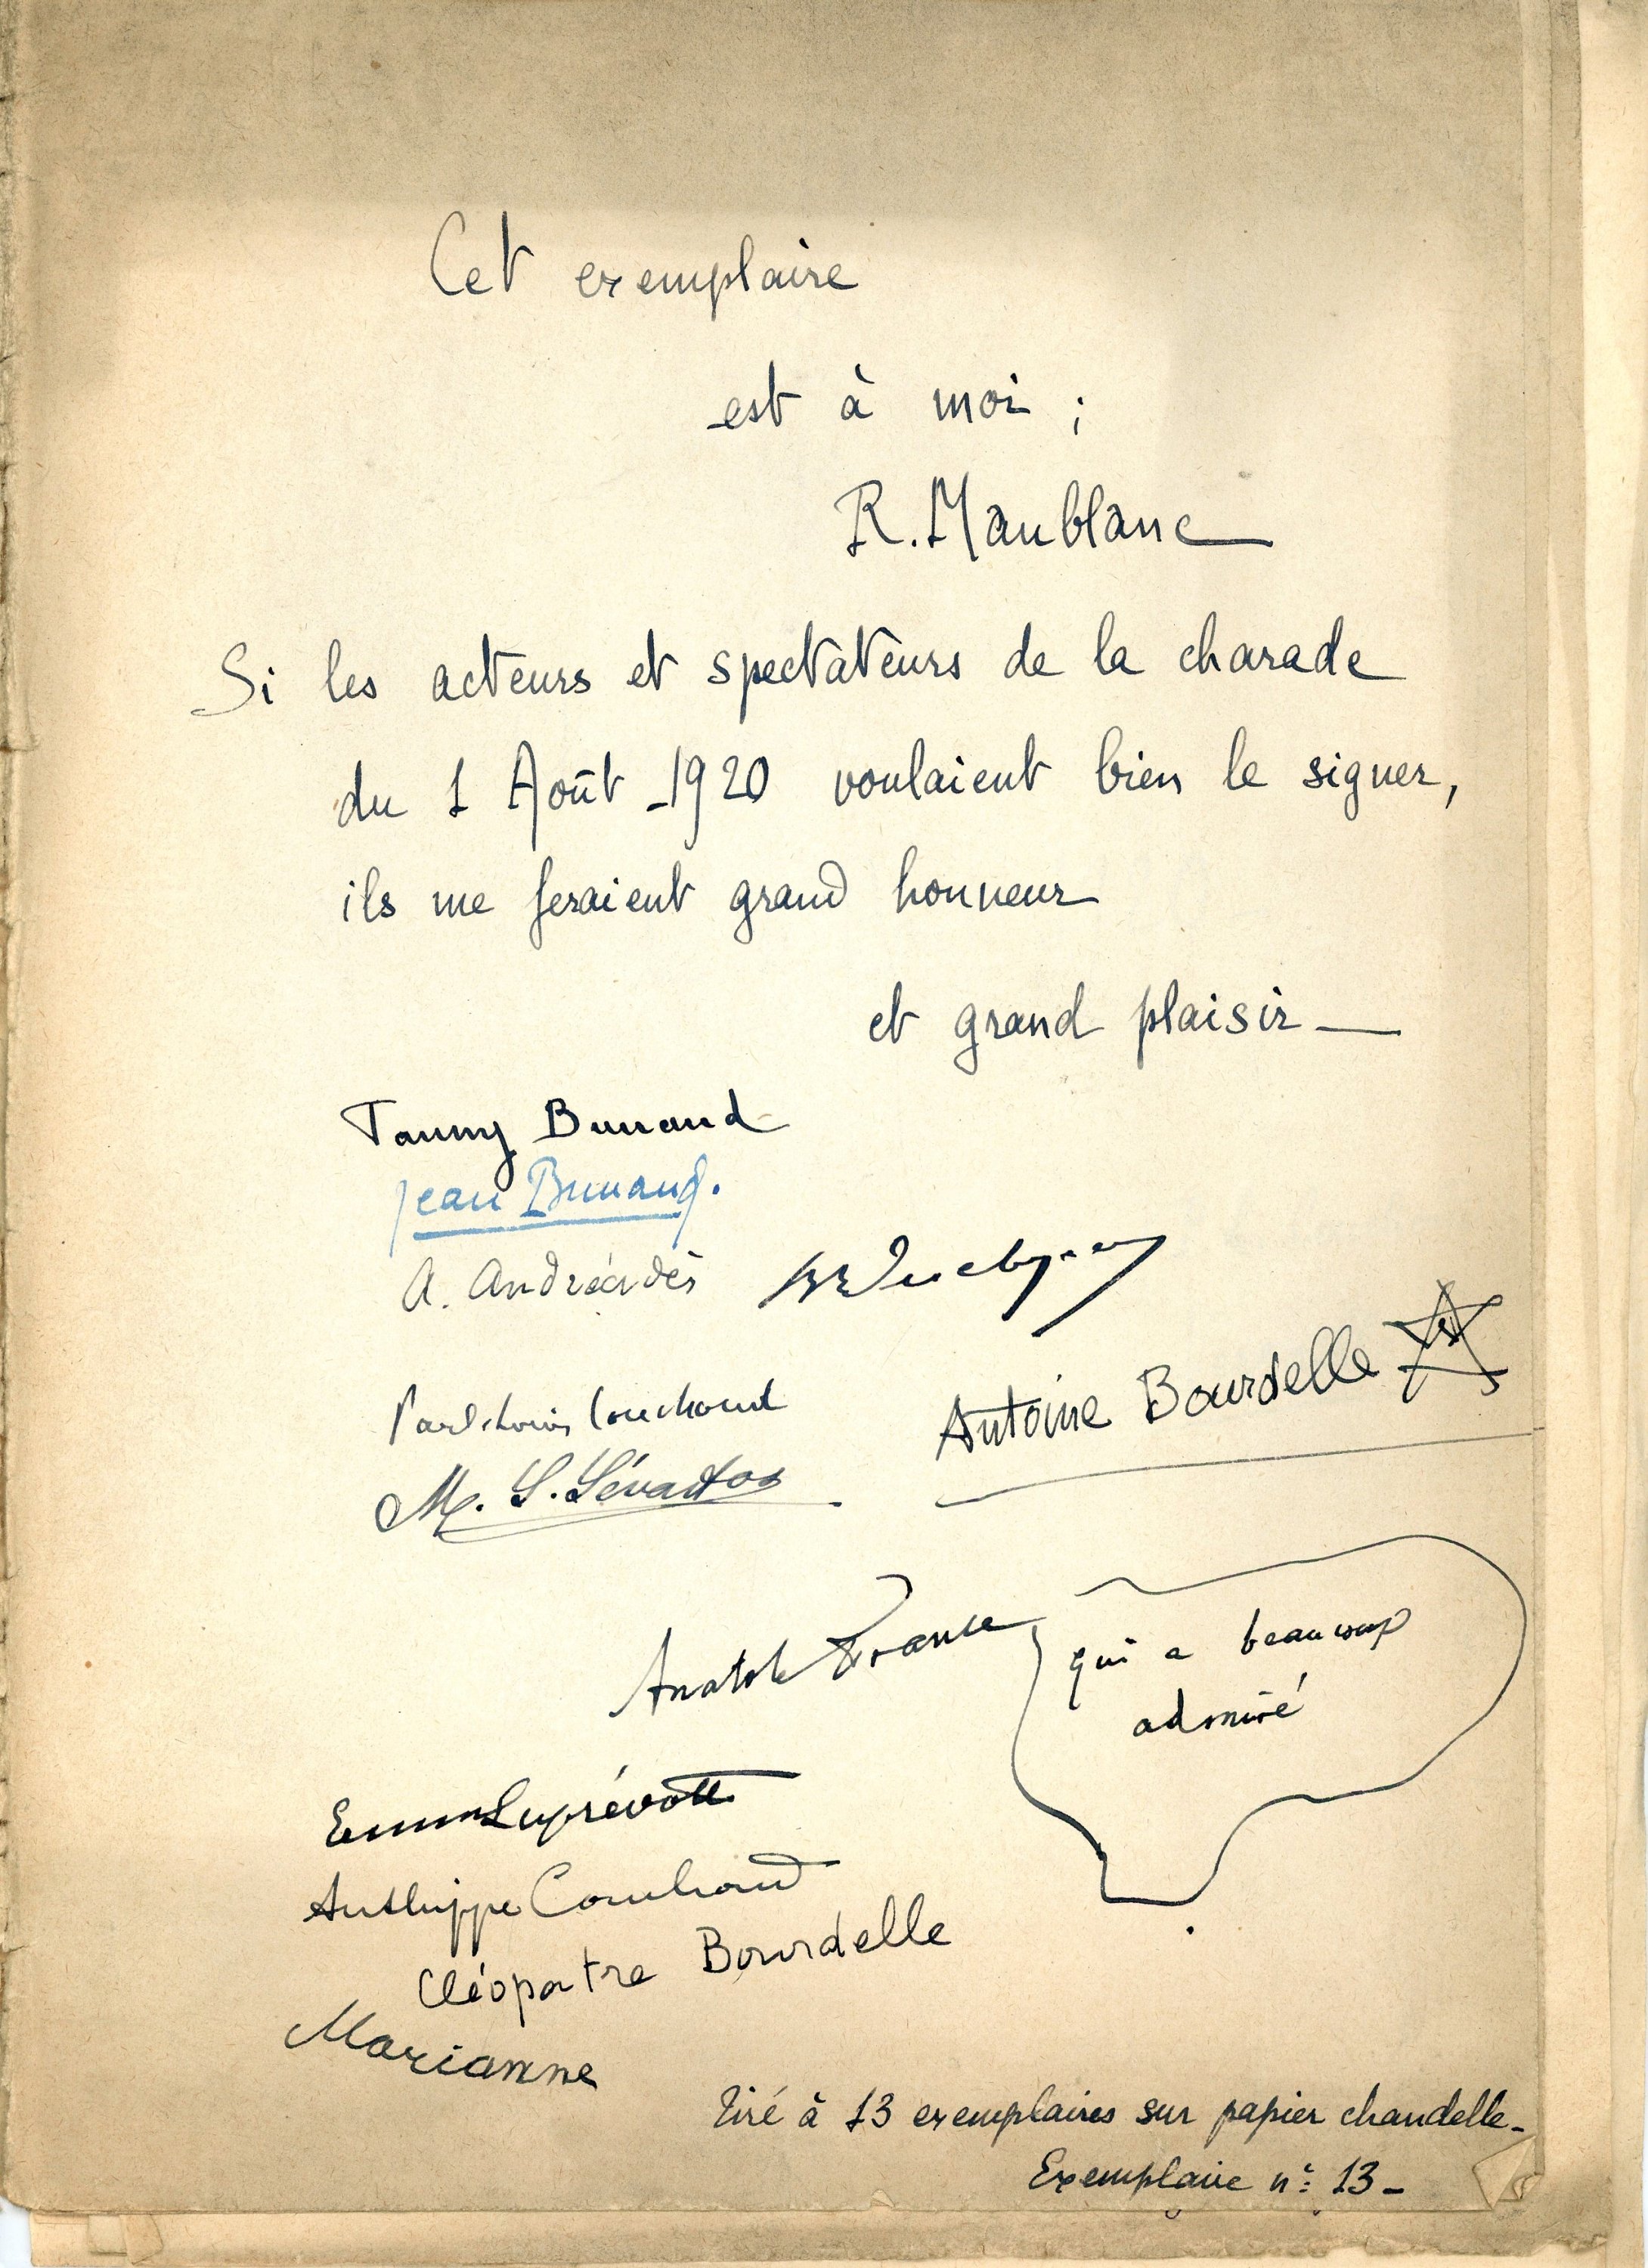 Cet exemplaire
est à moi ;
R. Maublanc
Si les acteurs et spectateurs de la charade
du 1 Août - 1920 voulaient bien le signer,
ils me feraient grand honneur
et grand plaisir —
Bunand
Jean Bunand.
A. Andréadès
Antoine Bourdelle
Paul-Louis Couchoud
M. S. Sévastos
Anatole France
qui a beaucoup
admiré
Emma Leprévotte
Anthippe Couchoud
Cléopatre Bourdelle
Marianne
Tiré à 13 exemplaires sur papier chandelle -
Exemplaire n° 13 -